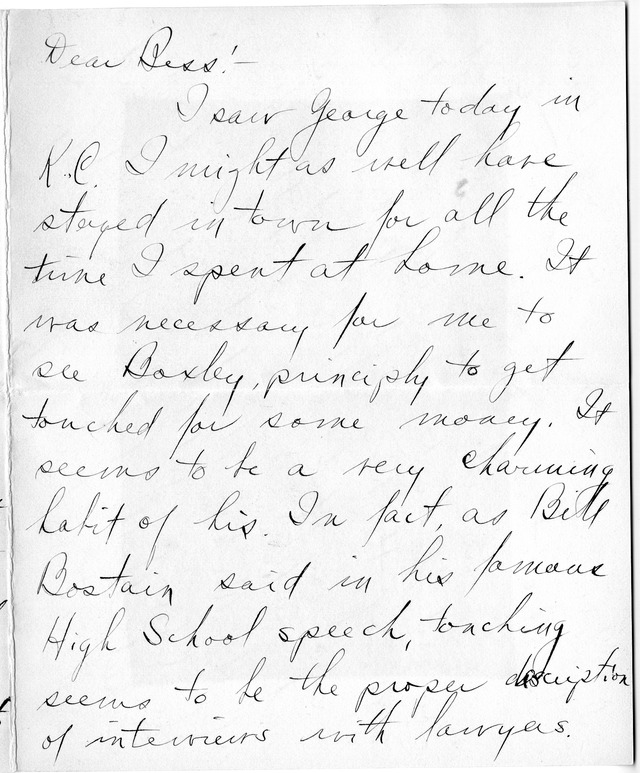 Dear Bess:-
I saw George today in
K.C. I might as well have
stayed in town for all the
time I spent at home. It
was necessary for me to
see Boxley, principly to get
touched for some money. It
seems to be a very charming
habit of his. In fact, as Bill
Bostain said in his famous
High School speech, touching
seems to be the proper discription
of interviews with lawyers.